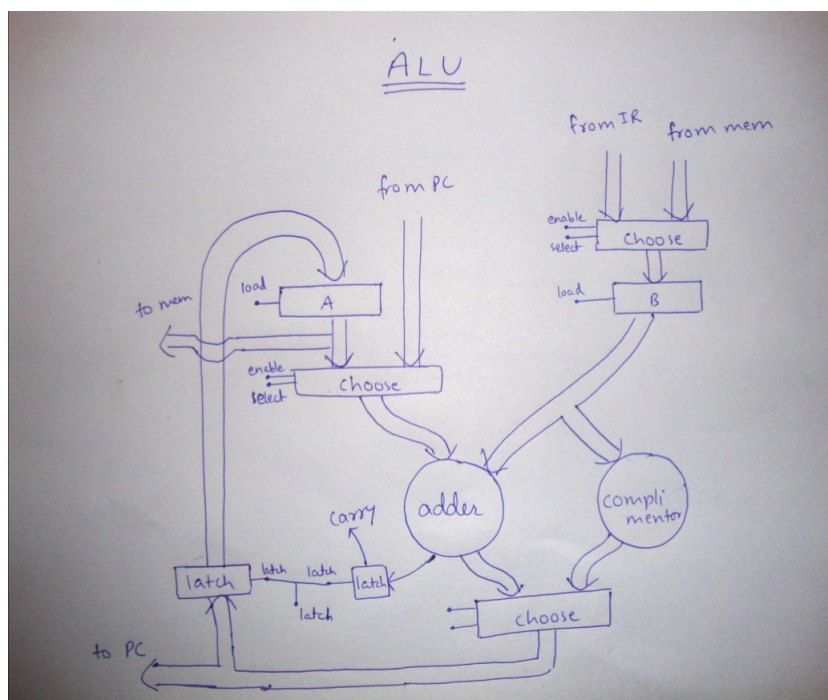 ALU
from IR
from mem
from PC
enable
select
choose
load
A
load
B
to mem
enable
select
choose
adder
compli
mentor
carry
latch
latch
latch
latch
latch
choose
to PC